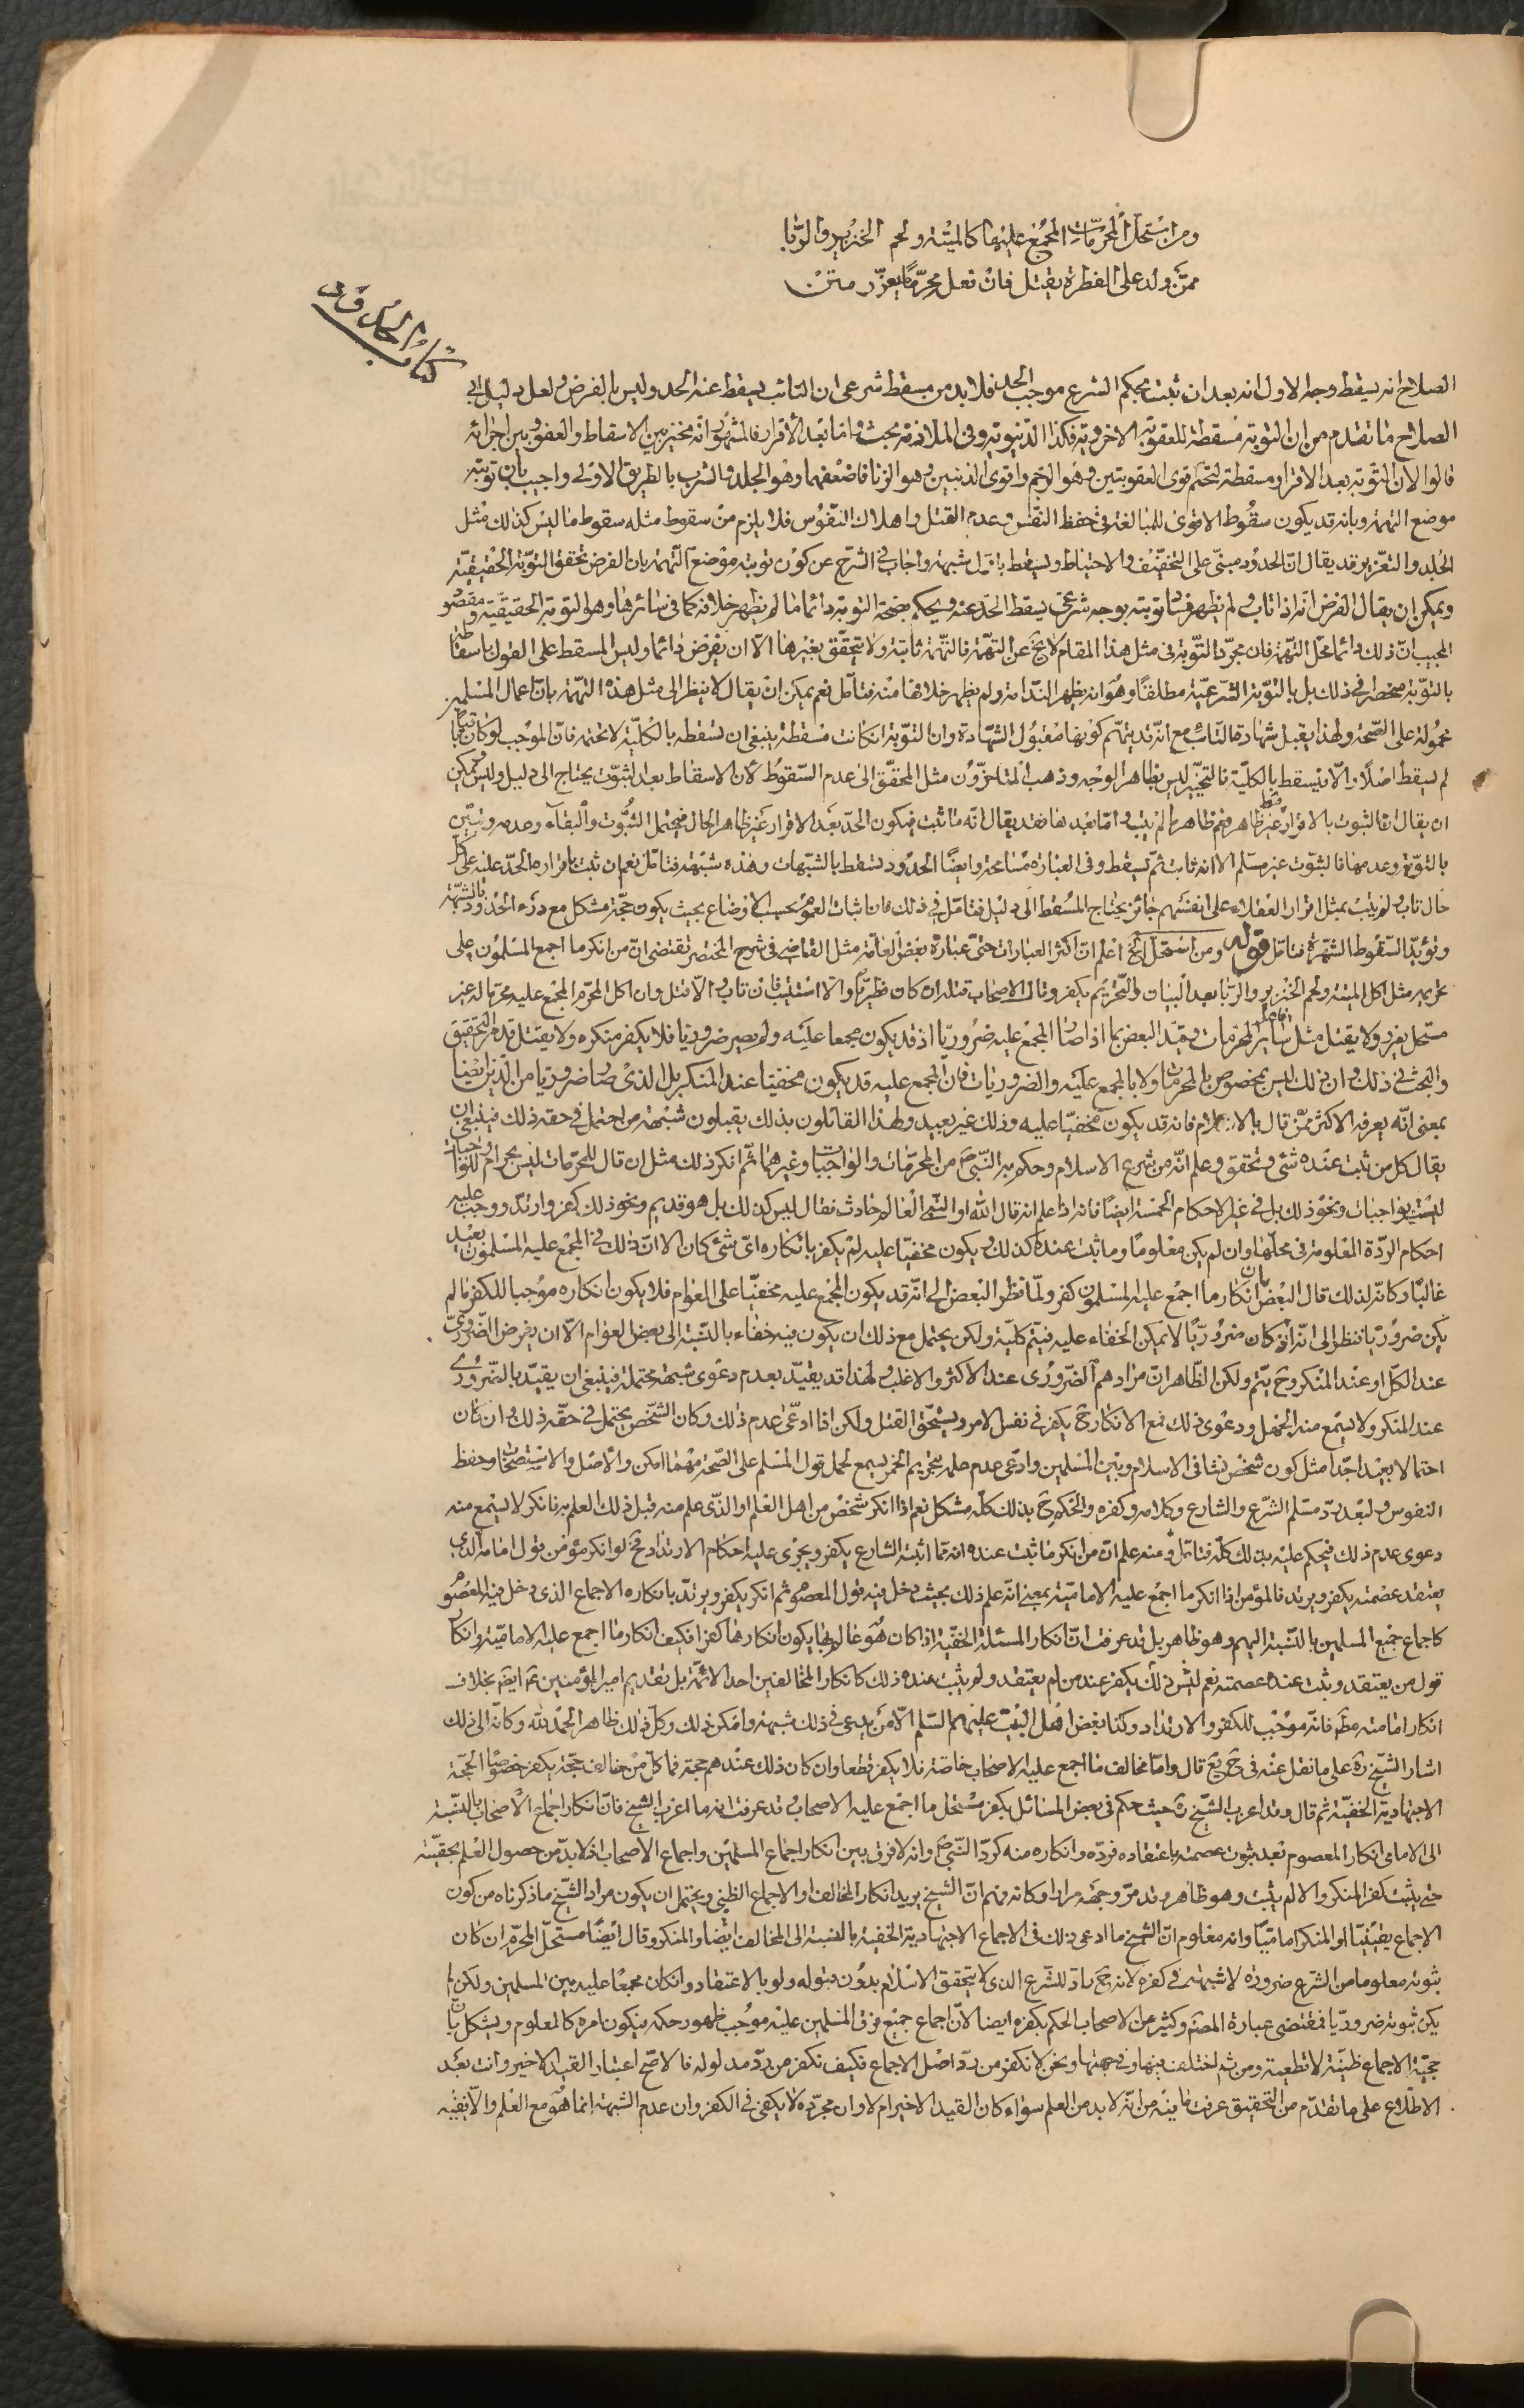 ومن استحلّ المحرّمات المجمع عليها كالميتة ولحم الخنزير والرّبا
ممّن ولد على الفطرة يقتل فان فعل محرّمًا يعزّر متن
كتاب الحدود
الصلاح انه يسقط وجه الاول انه بعد ان ثبت بحكم الشرع موجب الحد فلا بد من مسقط شرعى ان التائب يسقط عنه الحد وليس بالفرض ولعل دليل ابى
الصلاح ما تقدم من ان التوبة مسقطة للعقوبة الاخروية فكذا الدنيوية وفى الملازمة بحث واما بعد الاقرار فالمشهور انه مخير بين الاسقاط والعفو وبين اجرائه
قالوا لان التوبة بعد الاقرار مسقطة لتحتم قوى العقوبتين وهو الرجم واقوى الذنبين وهو الزنا فاضعفهما وهو الجلد والشرب بالطريق الاولى واجيب بان توبته
موضع التهمة وبانه قد يكون سقوط الاقوى للمبالغة فى حفظ النفس وعدم القتل واهلاك النفوس فلا يلزم من سقوط مثله سقوط ما ليس كذلك مثل
الجلد والتعزير وقد يقال انّ الحدود مبنىّ على التخفيف والاحتياط ويسقط باقل شبهة واجاب فى الشرح عن كون توبته موضع التهمة بان الفرض تحقق التوبة الحقيقيّة
ويمكن ان يقال الفرض انه اذا تاب ولم يظهر فساد توبته بوجه شرعى يسقط الحد عنه ويحكم بصحة التوبة دائما ما لم يظهر خلافه كما فى سائرها وهو التوبة الحقيقية ومقصود
المجيب انّ ذلك دائما محلّ التهمة فان مجرّد التوبة فى مثل هذا المقام لا يخ عن التهمة فالتهمة ثابتة ولا يتحقّق بغيرها الّا ان يفرض دائما وليس المسقط على القول باسقاطه
بالتوبة منحصرا فى ذلك بل بالتوبة الشرعيّة مطلقًا وهو ان يظهر الندامة ولم يظهر خلافها منه فتأمّل نعم يمكن ان يقال لا ينظر الى مثل هذه التهمة بانّ اعمال المسلمين
محمولة على الصّحة ولهذا يقبل شهادة التائب مع انّه قد يتهم كونها مقبول الشهادة وان التوبة ان كانت مسقطة ينبغى ان تسقطه بالكليّة لا تحتمه فانّ الموجب لو كان ثابتا
لم يسقط اصلًا والّا يسقط بالكليّة فالتخيير ليس بظاهر الوجه وذهب المتأخّرون مثل المحقّق الى عدم السّقوط لأن الاسقاط بعد الثبوت يحتاج الى دليل وليس ويمكن
ان يقال انّ الثبوت بالاقرار غير ظاهر نعم ظاهر ما لم يتب وامّا بعدها فقد يقال انّه ما ثبت فيكون الحدّ بعد الاقرار غير ظاهر الحال فيحتمل الثبوت والبقاء وعدمه وتبيّن
بالتوبة وعدمها فالثبوت غير مسلم الا انه ثابت ثمّ يسقط وفى العبارة مسامحة وايضًا الحدود تسقط بالشبهات وهذه شبهة فتأمّل نعم ان ثبت باقراره الحدّ عليه على كل
حال تاب ولم يتب بمثل اقرار العقلاء على انفسهم جائز يحتاج المسقط الى دليل فتأمّل فى ذلك فان اثبات العموم بحسب الاوضاع بحيث يكون حجّة مشكل مع درء الحدود بالشبهة
وتؤيّد السقوط الشهرة فتأمّل قوله ومن استحلّ الخ اعلم انّ اكثر العبارات حتى عبارة بعض العامّة مثل القاضى فى شرح المختصر تقتضى انّ من انكر ما اجمع المسلمون على
تحريمه مثل اكل الميتة ولحم الخنزير والرّبا بعد البيان والتّحريم يكفر وقال الاصحاب قتله ان كان فطريًّا والا استتيب فان تاب والّا قتل وان اكل المحرّم المجمع عليه محرّما له غير
مستحلّ يعزّر ولا يقتل مثل سائر المحرمات وقيّد البعض بما اذا صار المجمع عليه ضروريّا اذ قد يكون مجمعا عليه ولم يصر ضروريا فلا يكفر منكره ولا يقتل قد مرّ التحقيق
والبحث فى ذلك وان ذلك ليس بمخصوص بالمحرمات ولا بالمجمع عليه والضروريات فان المجمع عليه قد يكون مخفيّا عند المنكر بل الذى صار ضروريا من الدّين ايضا
بمعنى انّه يعرفه الاكثر ممّن قال بالاسلام فانه قد يكون مخفيّا عليه وذلك غير بعيد ولهذا القائلون بذلك يقبلون شبهة من احتمل فى حقه ذلك فينبغى ان
يقال كل من ثبت عنده شئ وتحقق وعلم انّه من شرع الاسلام وحكم به النّبىّ ص من المحرّمات والواجبات وغيرهما ثم انكر ذلك مثل ان قال للمحرّمات ليس بحرام للواجبات
ليست بواجبات ونحو ذلك بل فى غير الاحكام الخمسة ايضًا فانه اذا علم انه قال الله او النبى العالم حادث فقال ليس كذلك بل هو قديم ونحو ذلك كفر وارتدّ ووجب عليه
احكام الردّة المعلومة فى محلّها وان لم يكن معلومًا وما ثبت عنده كذلك ويكون مخفيّا عليه لم يكفر بانكاره اىّ شئ كان الا انّ ذلك فى المجمع عليه المسلمون بعيد
غالبًا وكانّه لذلك قال البعض بان انكار ما اجمع عليه المسلمون كفر ولمّا نظر البعض الى انّه قد يكون المجمع عليه مخفيّا على العوام فلا يكون انكاره موجبا للكفر ما لم
يكن ضروريّا فنظر الى انّه اذا كان ضروريّا لا يمكن الخفاء عليه فيتم كليّة ولكن يحتمل مع ذلك ان يكون فيه خفاء بالنسبة الى بعض العوام الّا ان يفرض الضّرورىّ
عند الكلّ او عند المنكر وح يتم ولكن الظّاهر انّ مرادهم الضّرورى عند الاكثر والاغلب ولهذا قد يقيّد بعدم دعوى شبهة محتملة فينبغى ان يقيّد بالضرورى
عند المنكر ولا يسمع منه الجهل ودعوى ذلك فمع الانكار ح يكفر فى نفس الامر ويستحق القتل ولكن اذا ادّعى عدم ذلك وكان الشخص يحتمل فى حقّه ذلك وان كان
احتمالا بعيدا جدّا مثل كون شخص نشأ فى الاسلام وبين المسلمين وادّعى عدم علمه بتحريم الخمر يسمع لحمل قول المسلم على الصّحة مهما امكن والاصل والاستصحاب وحفظ
النفوس ولبعد ردّ مسلم الشّرع والشارع وكلامه وكفره والحكم ح بذلك كلّه مشكل نعم اذا انكر شخص من اهل العلم او الذى علم منه قبل ذلك العلم به فانكر لا يسمع منه
دعوى عدم ذلك فيحكم عليه بذلك كلّه فتأمّل ومنه علم انّ من انكر ما ثبت عنده انه ممّا اثبته الشارع يكفر ويجرى عليه احكام الارتداد فح لو انكر مؤمن قول امامه الذى
يعتقد عصمته يكفر ويرتد فالمؤمن اذا انكر ما اجمع عليه الاماميّة بمعنى انّه علم ذلك بحيث دخل فيه قول المعصوم ثم انكر يكفر ويرتدّ بانكاره الاجماع الذى دخل فيه المعصوم
كاجماع جميع المسلمين بالنسبة اليهم وهو ظاهر بل قد عرفت انّ انكار المسئلة الخفيّة اذا كان هو عالم بها يكون انكارها كفرا فكيف انكار ما اجمع عليه الاماميّة وانكار
قول من يعتقد وثبت عنده عصمته نعم ليس ذلك يكفر عند من لم يعتقد ولم يثبت عنده ذلك كانكار المخالفين احد الائمّة بل تقديم امير المؤمنين ع ايض بخلاف
انكار امامته مط فانّه موجب للكفر والارتداد وكذا بغض اهل البيت عليهم السّلم الّا من يدعى فى ذلك شبهة وامكن ذلك وكلّ ذلك ظاهر الحمد لله وكانّه الى ذلك
اشار الشّيخ ره على ما نقل عنه فى ح يع قال وامّا مخالف ما اجمع عليه الاصحاب خاصّة فلا يكفر قطعا وان كان ذلك عندهم حجة فما كلّ من خالف حجّة يكفر خصوصًا الحجّة
الاجتهاديّة الخفيّة ثم قال وقد اغرب الشّيخ ره حيث حكم فى بعض المسائل بكفر مستحل ما اجمع عليه الاصحاب وقد عرفت انه ما اغرب الشيخ فانّ انكار اجماع الاصحاب بالنّسبة
الى الامامى انكار المعصوم بعد ثبوت عصمته باعتقاده فردّه وانكاره منه كردّ النّبىّ ص وانه لا فرق بين انكار اجماع المسلمين واجماع الاصحاب اذ لا بدّ من حصول العلم بحقيّته
حتى يثبت كفر المنكر والا لم يثبت وهو ظاهر وقد مرّ وجهه مرارا وكانه فهم انّ الشيخ يريد انكار المخالف او الاجماع الظنى ويحتمل ان يكون مراد الشّيخ ما ذكرناه من كون
الاجماع يقينيّا او المنكر اماميّا وانه معلوم انّ الشيخ ما ادعى ذلك فى الاجماع الاجتهادية الخفية بالنسبة الى المخالف ايضا والمنكر وقال ايضًا مستحلّ المحرّم ان كان
ثبوته معلوما من الشرع ضرورة لا شبهة فى كفره لانه ح رادّ للشّرع الذى لا يتحقق الاسلام بدون قبوله ولو بالاعتقاد وان كان مجمعًا عليه بين المسلمين ولكن لم
يكن ثبوته ضروريّا فمقتضى عبارة المصنّف وكثير من الاصحاب الحكم بكفره ايضا لانّ اجماع جميع فرق المسلمين عليه موجب ظهور حكمه فيكون امره كالمعلوم ويشكل بانّ
حجيّة الاجماع ظنيّة لا قطعية ومن ثم اختلف فيها وفى جهتها ونحن لا نكفر من ردّ اصل الاجماع فكيف نكفر من ردّ مدلوله فالاصحّ اعتبار القيد الاخير وانت بعد
الاطّلاع على ما تقدّم من التحقيق عرفت ما فيه من انّه لا بد من العلم سواء كان القيد الاخير ام لا وان مجرّده لا يكفى فى الكفر وان عدم الشبهة انما هو مع العلم والّا بقيّه